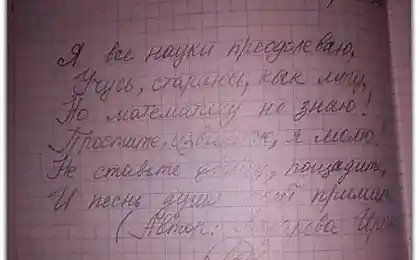 Я все науки преодолеваю,
Учусь, стараюсь, как могу,
Но математику не знаю!
Простите, извините, я молю!
Не ставьте двойку, пощадите,
И песнь души моей примите
(Автор: Ири